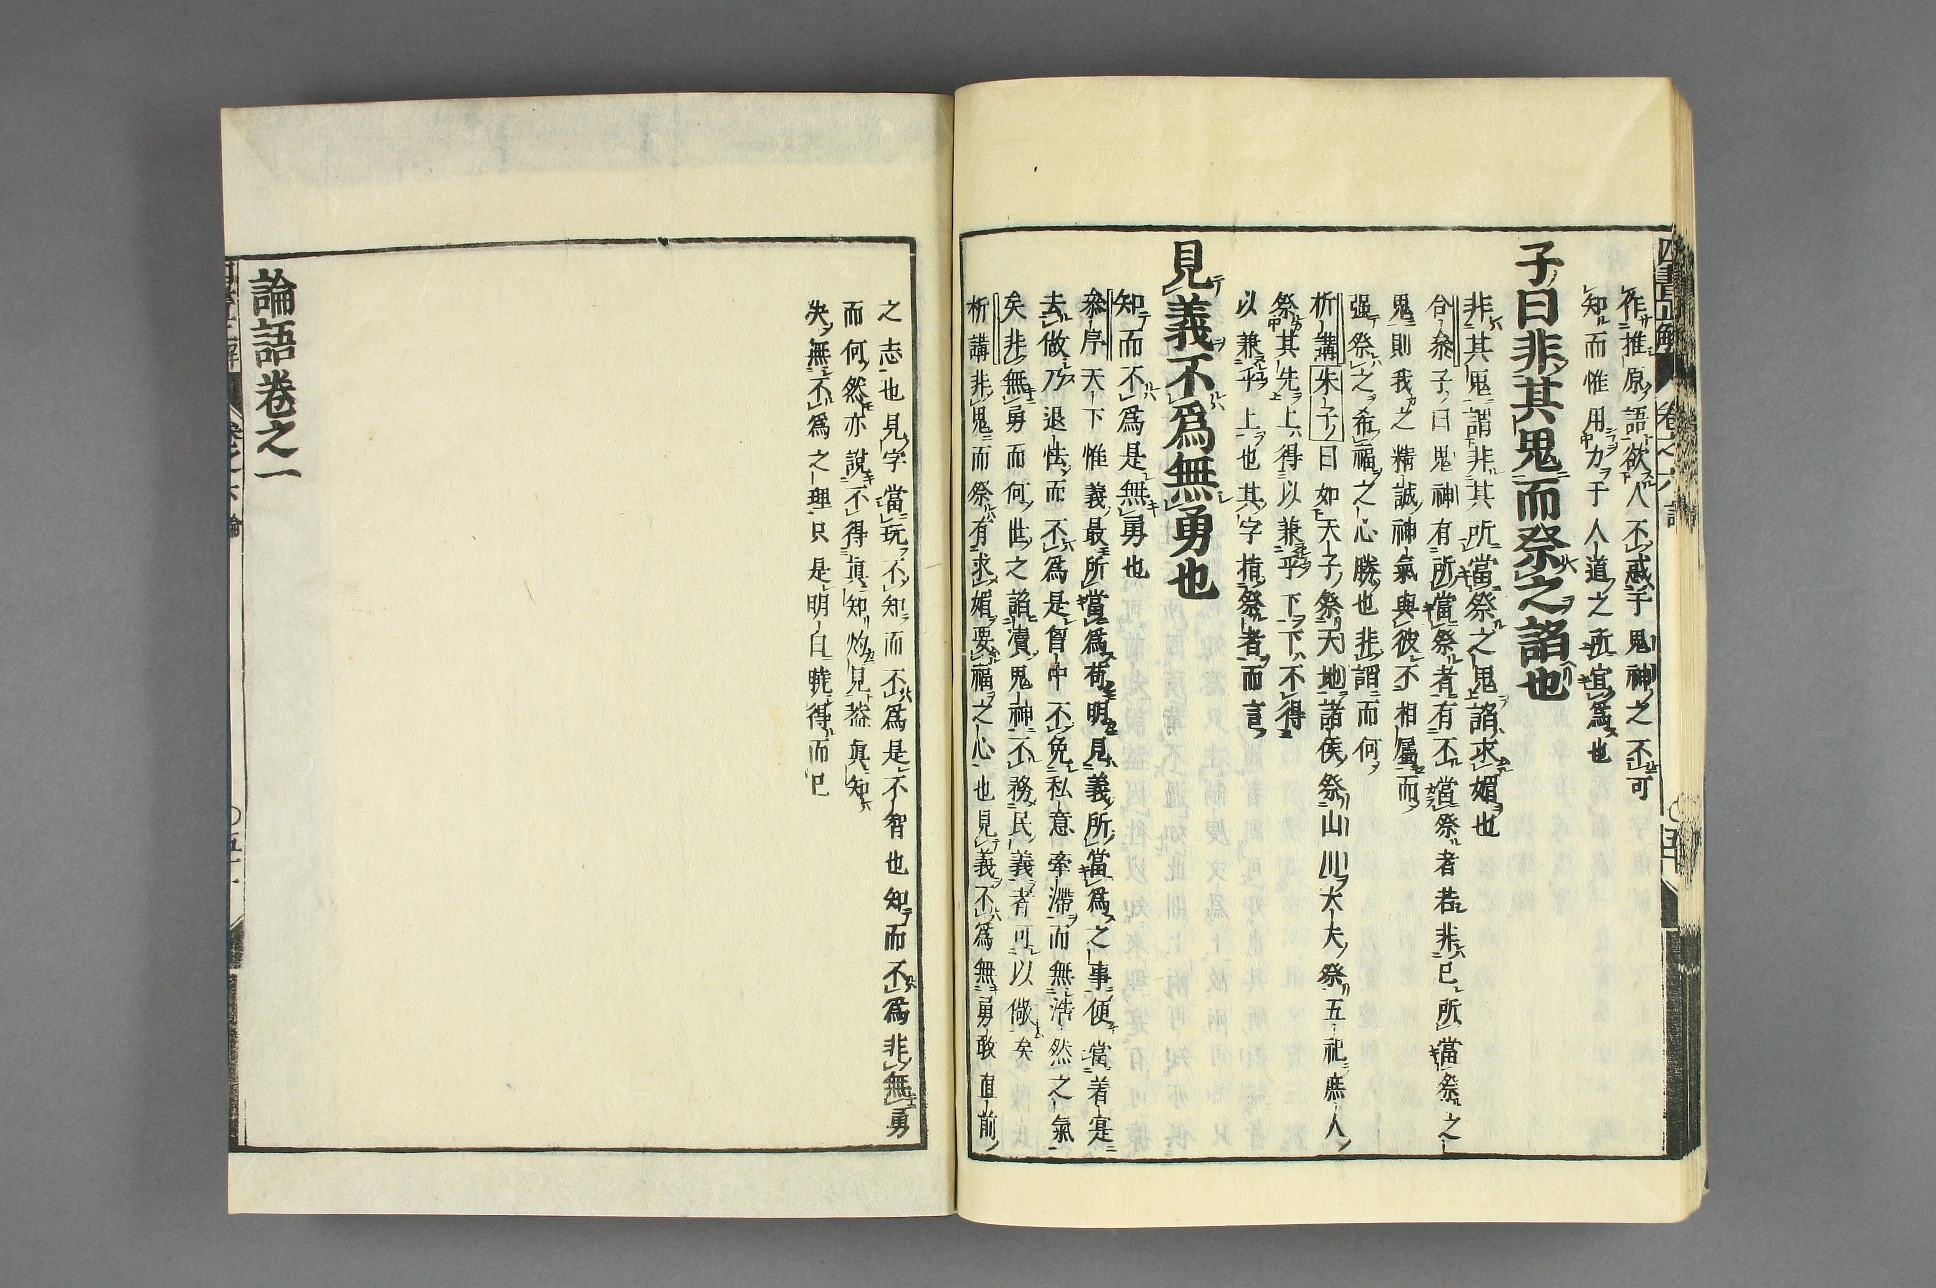 四書正解 卷之六 論
作推原語欲人不惑于鬼神之不可
知而惟用力于人道之所宜爲也
子曰非其鬼而祭之諂也
非其鬼謂非其所當祭之鬼諂求媚也
合參子曰鬼神有所當祭者有不當祭者若非已所當祭之
鬼則我之精誠神氣與彼不相屬而
强祭之希福之心勝也非諂而何
析講朱子曰如天子祭天地諸侯祭山川大夫祭五祀庶人
祭其先上得以兼乎下下不得
以兼乎上也其字指祭者而言
見義不爲無勇也
知而不爲是無勇也
參序天下惟義最所當爲苟明見義所當爲之事便當着寔
去做乃退怯而不爲是智中不免私意牽滯而無浩然之氣
矣非無勇而何世之諂瀆鬼神不務民義者可以儆矣
析講非鬼而祭有求媚要福之心也見義不爲無勇敢直前
之志也見字當玩不知而不爲是不智也知而不爲非無勇
而何然亦說不得眞知灼見葢眞知
失無不爲之理只是明白曉得而已
論語卷之一